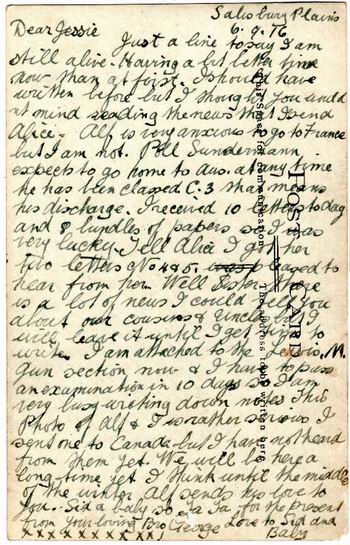 Salisbury Plains
6.9.16
Dear Jessie
Just a line to say I am
still alive. Having a bit better time
now than at first. I should have
written before but I thought you would
not mind reading the news that I send
Alice. Alf is very anxious to go to France
but I am not. Poll Sundermann
expects to go home to Aus. at any time
he has been classed C.3 that means
his discharge. I received 10 letters to day
and 8 bundles of papers so I was
very lucky. Tell Alice I got her
two letters No 4 & 5. pleased to
hear from her. Well Sister there
is a lot of news I could tell you
about our cousins & Uncles but I
will leave it until I get time to
write. I am attached to the Lewis, M.
Gun section now & I have to pass
an examination in 10 days so I am
very busy writing down notes. This
Photo of Alf & I is rather serious. I
sent one to Canada but I have not heard
from them yet. We will be here a
long time yet I think until the middle
of the winter. Alf sends his love to
you. Sid & baby so Ta Ta for the present
from your loving Bro George Love to Sid and
Baby
x x x x x x x x
POST CARD
This Space for communication
The address to be written here